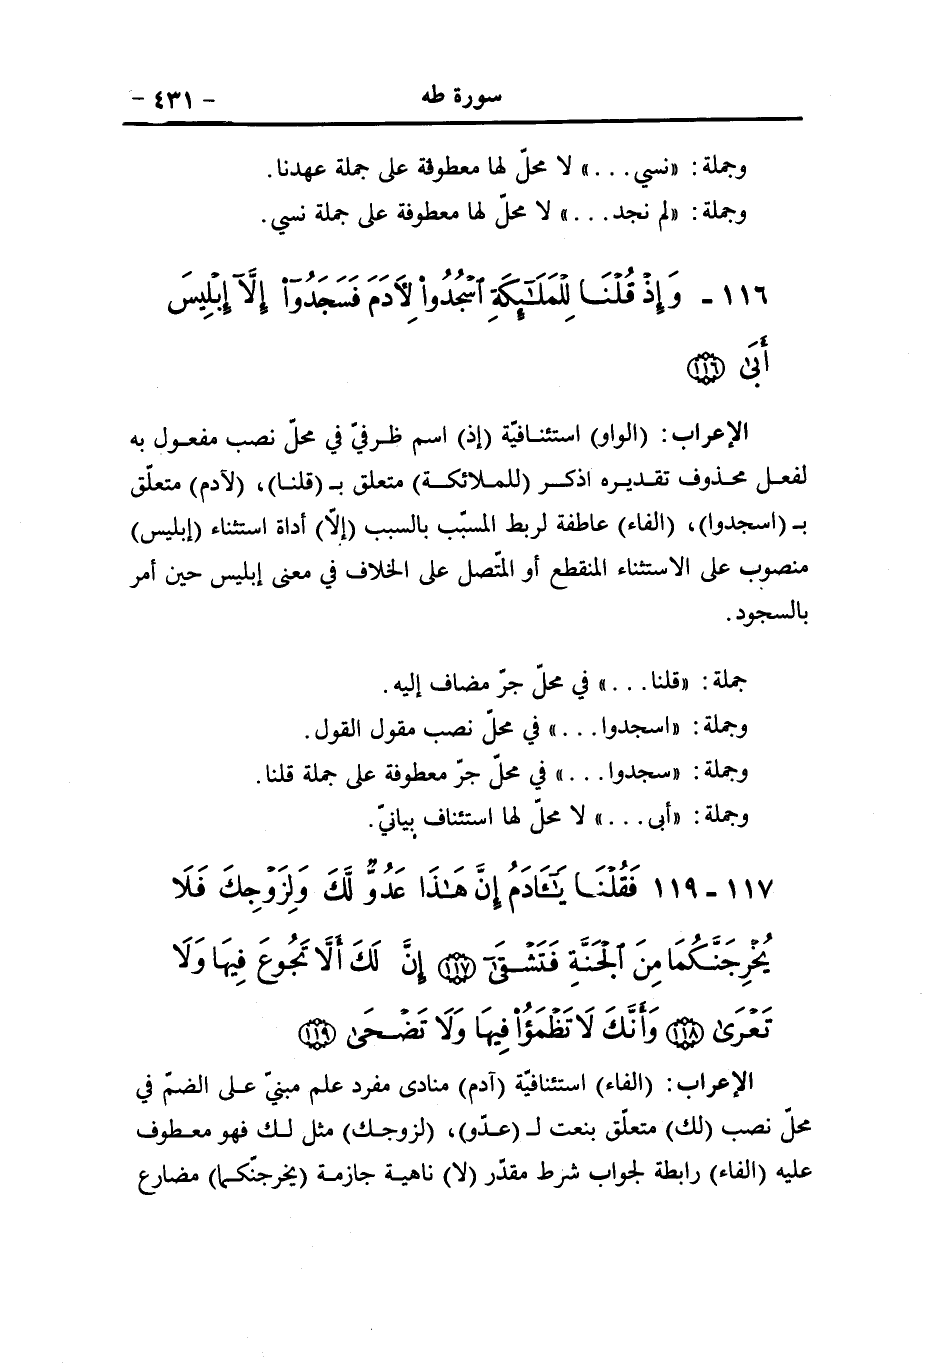 سورة طه - ٤٣١ -
وجملة: «نسي...» لا محلّ لها معطوفة على جملة عهدنا.
وجملة: «لم نجد...» لا محلّ لها معطوفة على جملة نسي.
١١٦ - وَإِذْ قُلْنَا لِلْمَلَٰٓئِكَةِ ٱسْجُدُواْ لِأَدَمَ فَسَجَدُوٓاْ إِلَّآ إِبْلِيسَ
أَبَىٰ ١١٦
الإعراب: (الواو) استئنافيّة (إذ) اسم ظرفيّ في محلّ نصب مفعول به
لفعل محذوف تقديره اذكر (للملائكة) متعلق بـ (قلنا)، (لآدم) متعلّق
بـ (اسجدوا)، (الفاء) عاطفة لربط المسبّب بالسبب (إلّا) أداة استثناء (إبليس)
منصوب على الاستثناء المنقطع أو المتّصل على الخلاف في معنى إبليس حين أمر
بالسجود.
جملة: «قلنا...» في محلّ جرّ مضاف إليه.
وجملة: «اسجدوا...» في محلّ نصب مقول القول.
وجملة: «سجدوا...» في محلّ جرّ معطوفة على جملة قلنا.
وجملة: «أبى...» لا محلّ لها استئناف بيانيّ.
١١٧ - ١١٩ فَقُلْنَا يَٰٓـَٔادَمُ إِنَّ هَٰذَا عَدُوٌّ لَّكَ وَلِزَوْجِكَ فَلَا
يُخْرِجَنَّكُمَا مِنَ ٱلْجَنَّةِ فَتَشْقَىٰٓ ١١٧ إِنَّ لَكَ أَلَّا تَجُوعَ فِيهَا وَلَا
تَعْرَىٰ ١١٨ وَأَنَّكَ لَا تَظْمَؤُاْ فِيهَا وَلَا تَضْحَىٰ ١١٩
الإعراب: (الفاء) استئنافيّة (آدم) منادى مفرد علم مبنيّ على الضمّ في
محلّ نصب (لك) متعلّق بنعت لـ (عدّو)، (لزوجك) مثل لك فهو معطوف
عليه (الفاء) رابطة لجواب شرط مقدّر (لا) ناهية جازمة (يخرجنّكما) مضارع